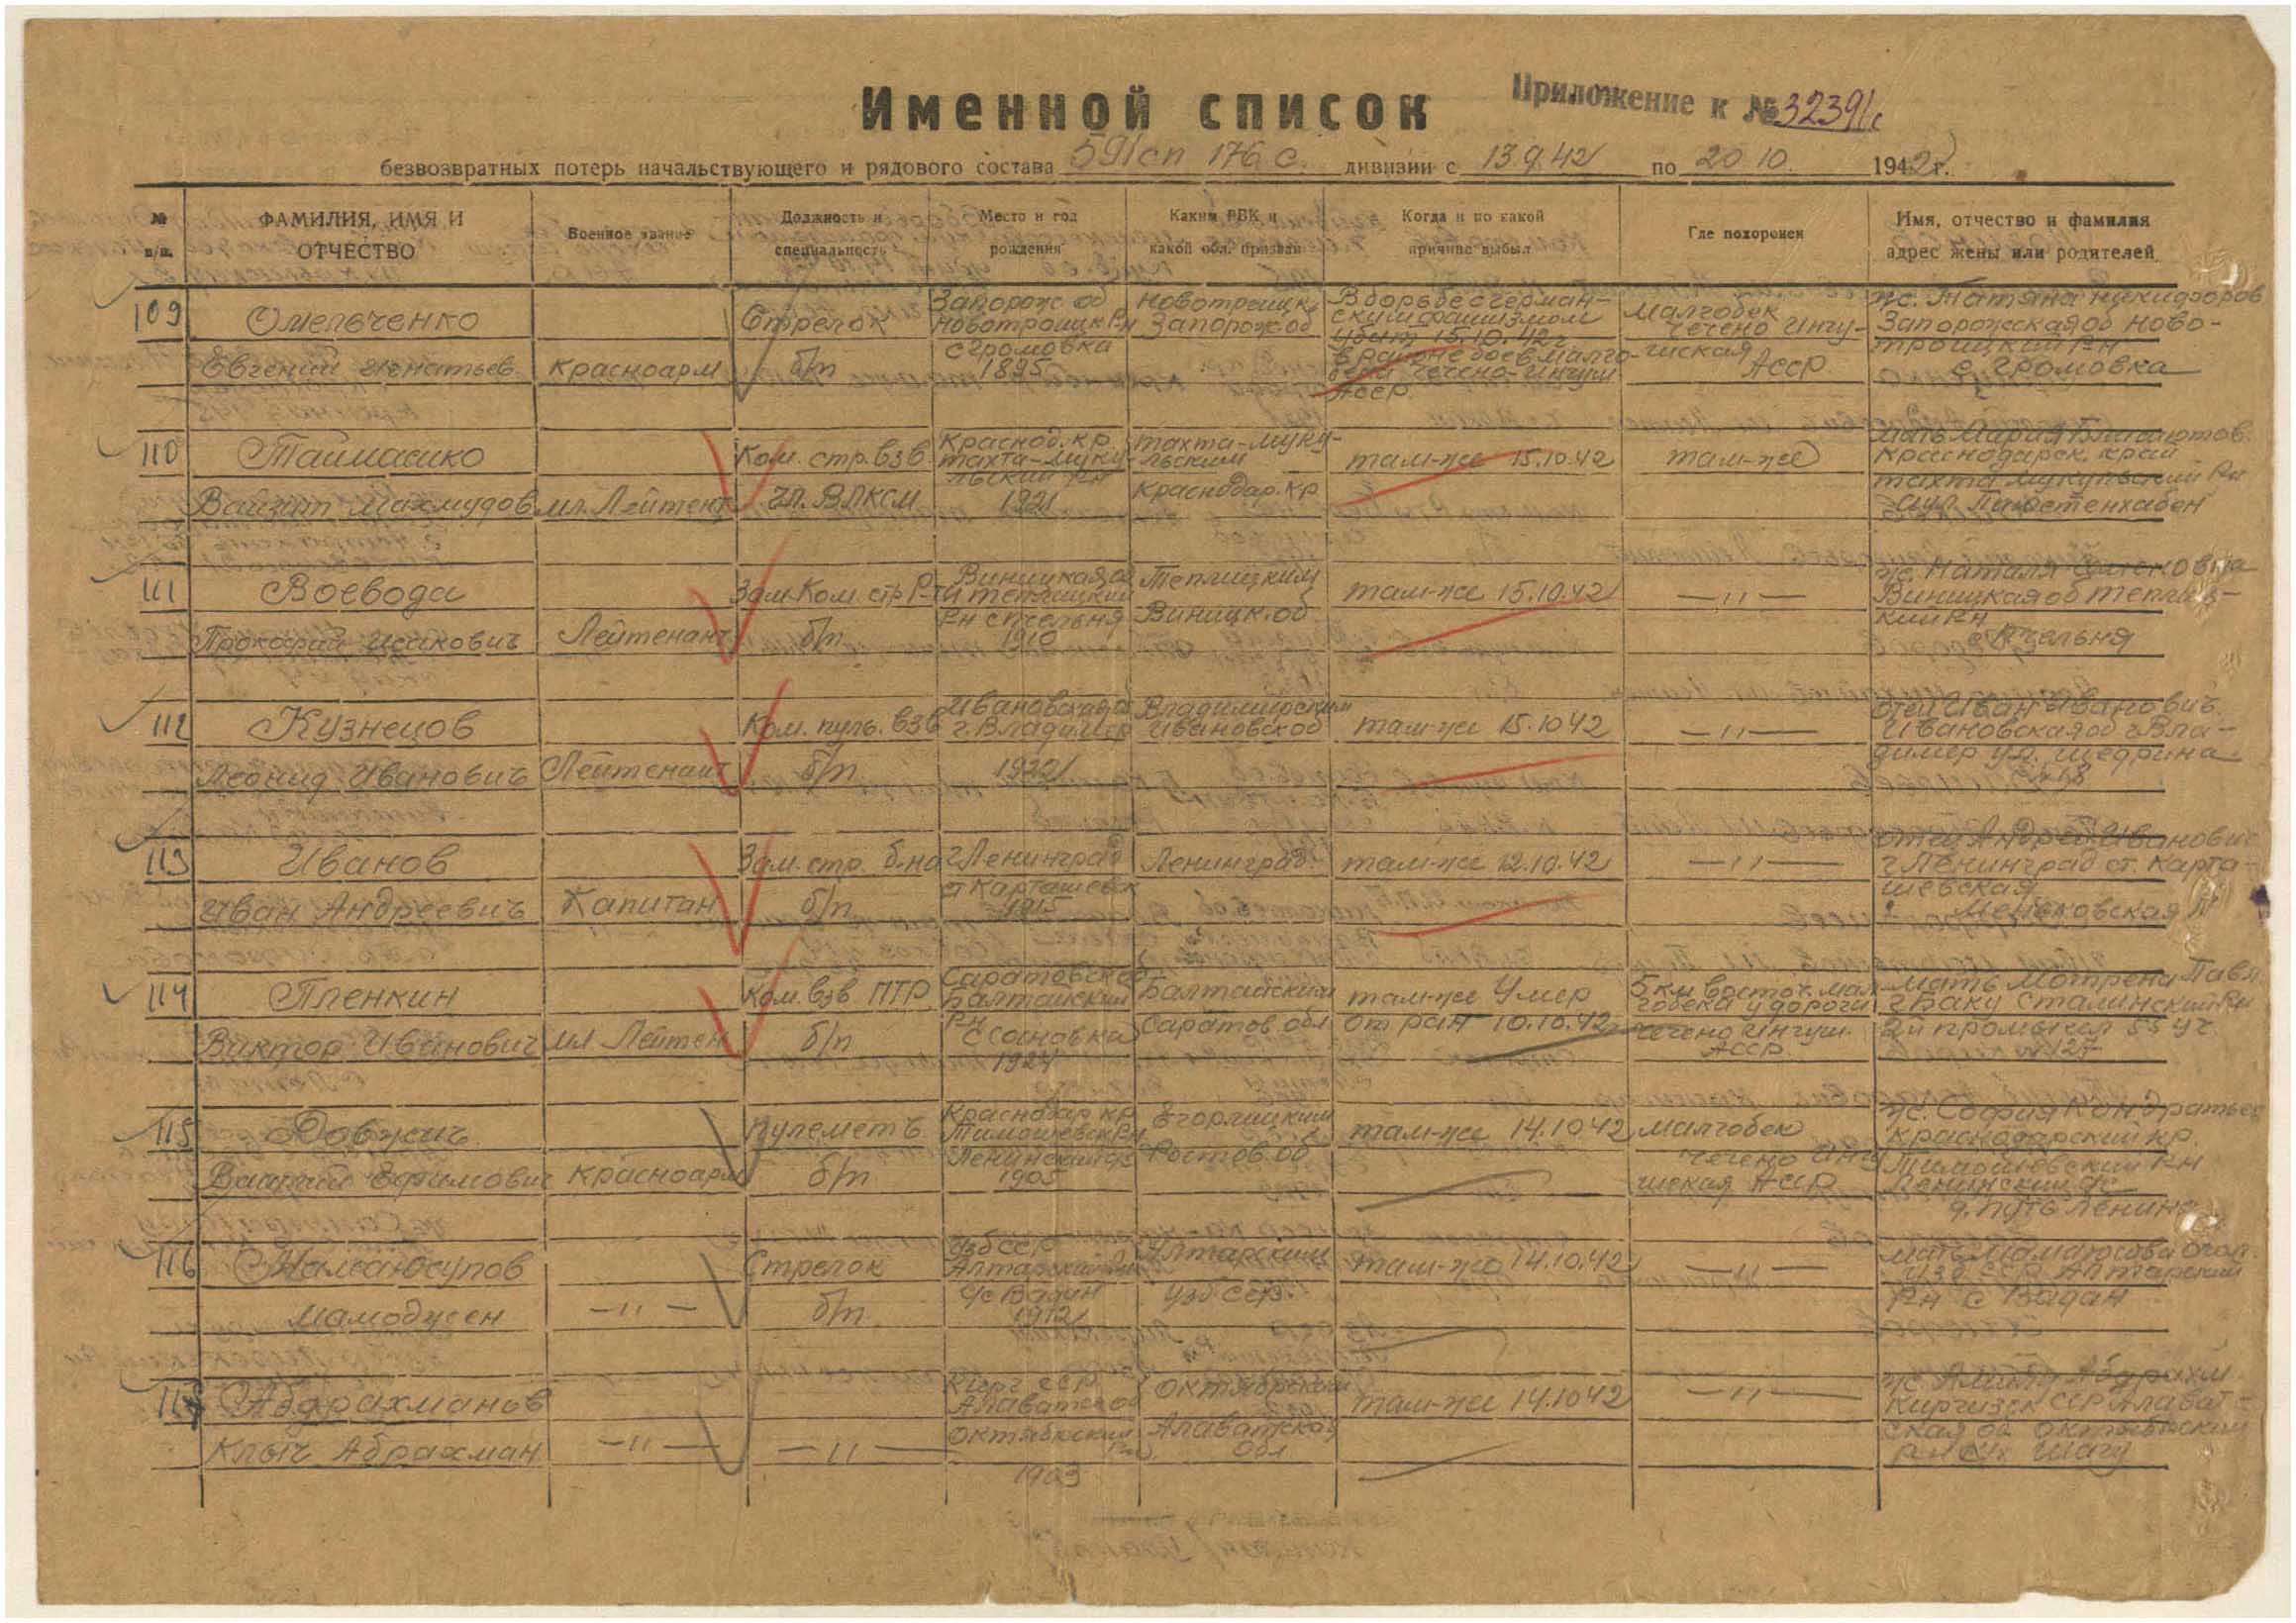 Именной список
Приложение к № 32391с
безвозвратных потерь начальствующего и рядового состава 591 сп 176 с. дивизии с 13.9.42 по 20 10. 1942 г.
№ п/п.
ФАМИЛИЯ, ИМЯ И ОТЧЕСТВО
Военное звание
Должность и специальность
Место и год рождения
Каким РВК и какой обл. призван
Когда и по какой причине выбыл
Где похоронен
Имя, отчество и фамилия адрес жены или родителей
109
Омельченко
Евгений Игнатьев
Красноарм
Стрелок
б/п
Запорож об
Новотроицк Рн
с Громовка
1895
Новотроицк
Запорож об
В борьбе с герман-
ским фашизмом
убит 15.10.42 г.
в районе боев Малго-
бека Чечено-Ингуш
АССР.
Малгобек
Чечено Ингу-
шская
АССР
ж. Татяна Никифоров
Запорожская об Ново-
троицкий Рн
с Громовка
110
Таймасико
Ваизит Махмудов
мл. Лейтент
Ком. стр. взв
чл. ВЛКСМ
Краснод. кр.
Тахта-Муку-
льский Рн
1921
Тахта-Муку-
льским
Краснодар. кр
там-же 15.10.42
там-же
мать Мария
Краснодарск. край
Тахта Мукульский Рн
аул
111
Воевода
Прокофий Исакович
Лейтенант
Зам. Ком. стр. Р-ты
б/п
Виницкая об
Теплицкий
Рн
1910
Теплицким
Виницк. об
там-же 15.10.42
—〃—
ж. Наталя
Виницкая об Теплиц-
кий Рн
112
Кузнецов
Леонид Иванович
Лейтенант
Ком. пуль. взв
б/п
Ивановская об
г. Владимир
1922
Владимирским
Ивановской
там-же 15.10 42
—〃—
отец Иван Иванович
Ивановская об г Вла-
димер ул. Щедрина
113
Иванов
Иван Андреевич
Капитан
Зам. стр. б-на
б/п
г Ленинград
ст Карташевск
1915
Ленинград.
там-же 12.10.42
—〃—
отец Андрей Иванович
г Ленинград ст. Карта-
шевская
114
Пленкин
Виктор Иванович
мл Лейтен
Ком. взв ПТР
б/п
Саратовская
Балтайский
Рн
1924
Балтайским
Саратов. обл
там-же Умер
от ран 10.10.42
5 км восточ. Мал-
гобека у дороги
Чечено Ингуш
АССР
мать Мотрена Павл
г Баку Сталинский Рн
промысел 55 уч
№ 127
115
Довжич
Василий Ефимович
Красноарм
Пулеметч
б/п
Краснодар кр
Тимошевск Рн
1905
Егорлицким
Ростов. об
там-же 14.10 42
Малгобек
Чечено Ингу
шская АССР
ж. София Кондратьев
Краснодарский кр.
Тимошевский Рн
Ленинский
Путь Ленина
116
Мамаюсупов
Мамоджен
—〃—
Стрелок
б/п
Узб ССР
Алтарский
с Вадан
1912
Алтарским
Узб ССР.
там-же 14.10.42
—〃—
мать
Узб ССР Алтарский
Рн с Вадан
117
Абдрахманов
Клыч Абрахман
—〃—
—〃—
Кирг ССР
Октябрский
Рн
1903
Октябрским
обл
там-же 14.10 42
—〃—
ж. Абдрахм
Киргизск ССР
ская об Октябрский